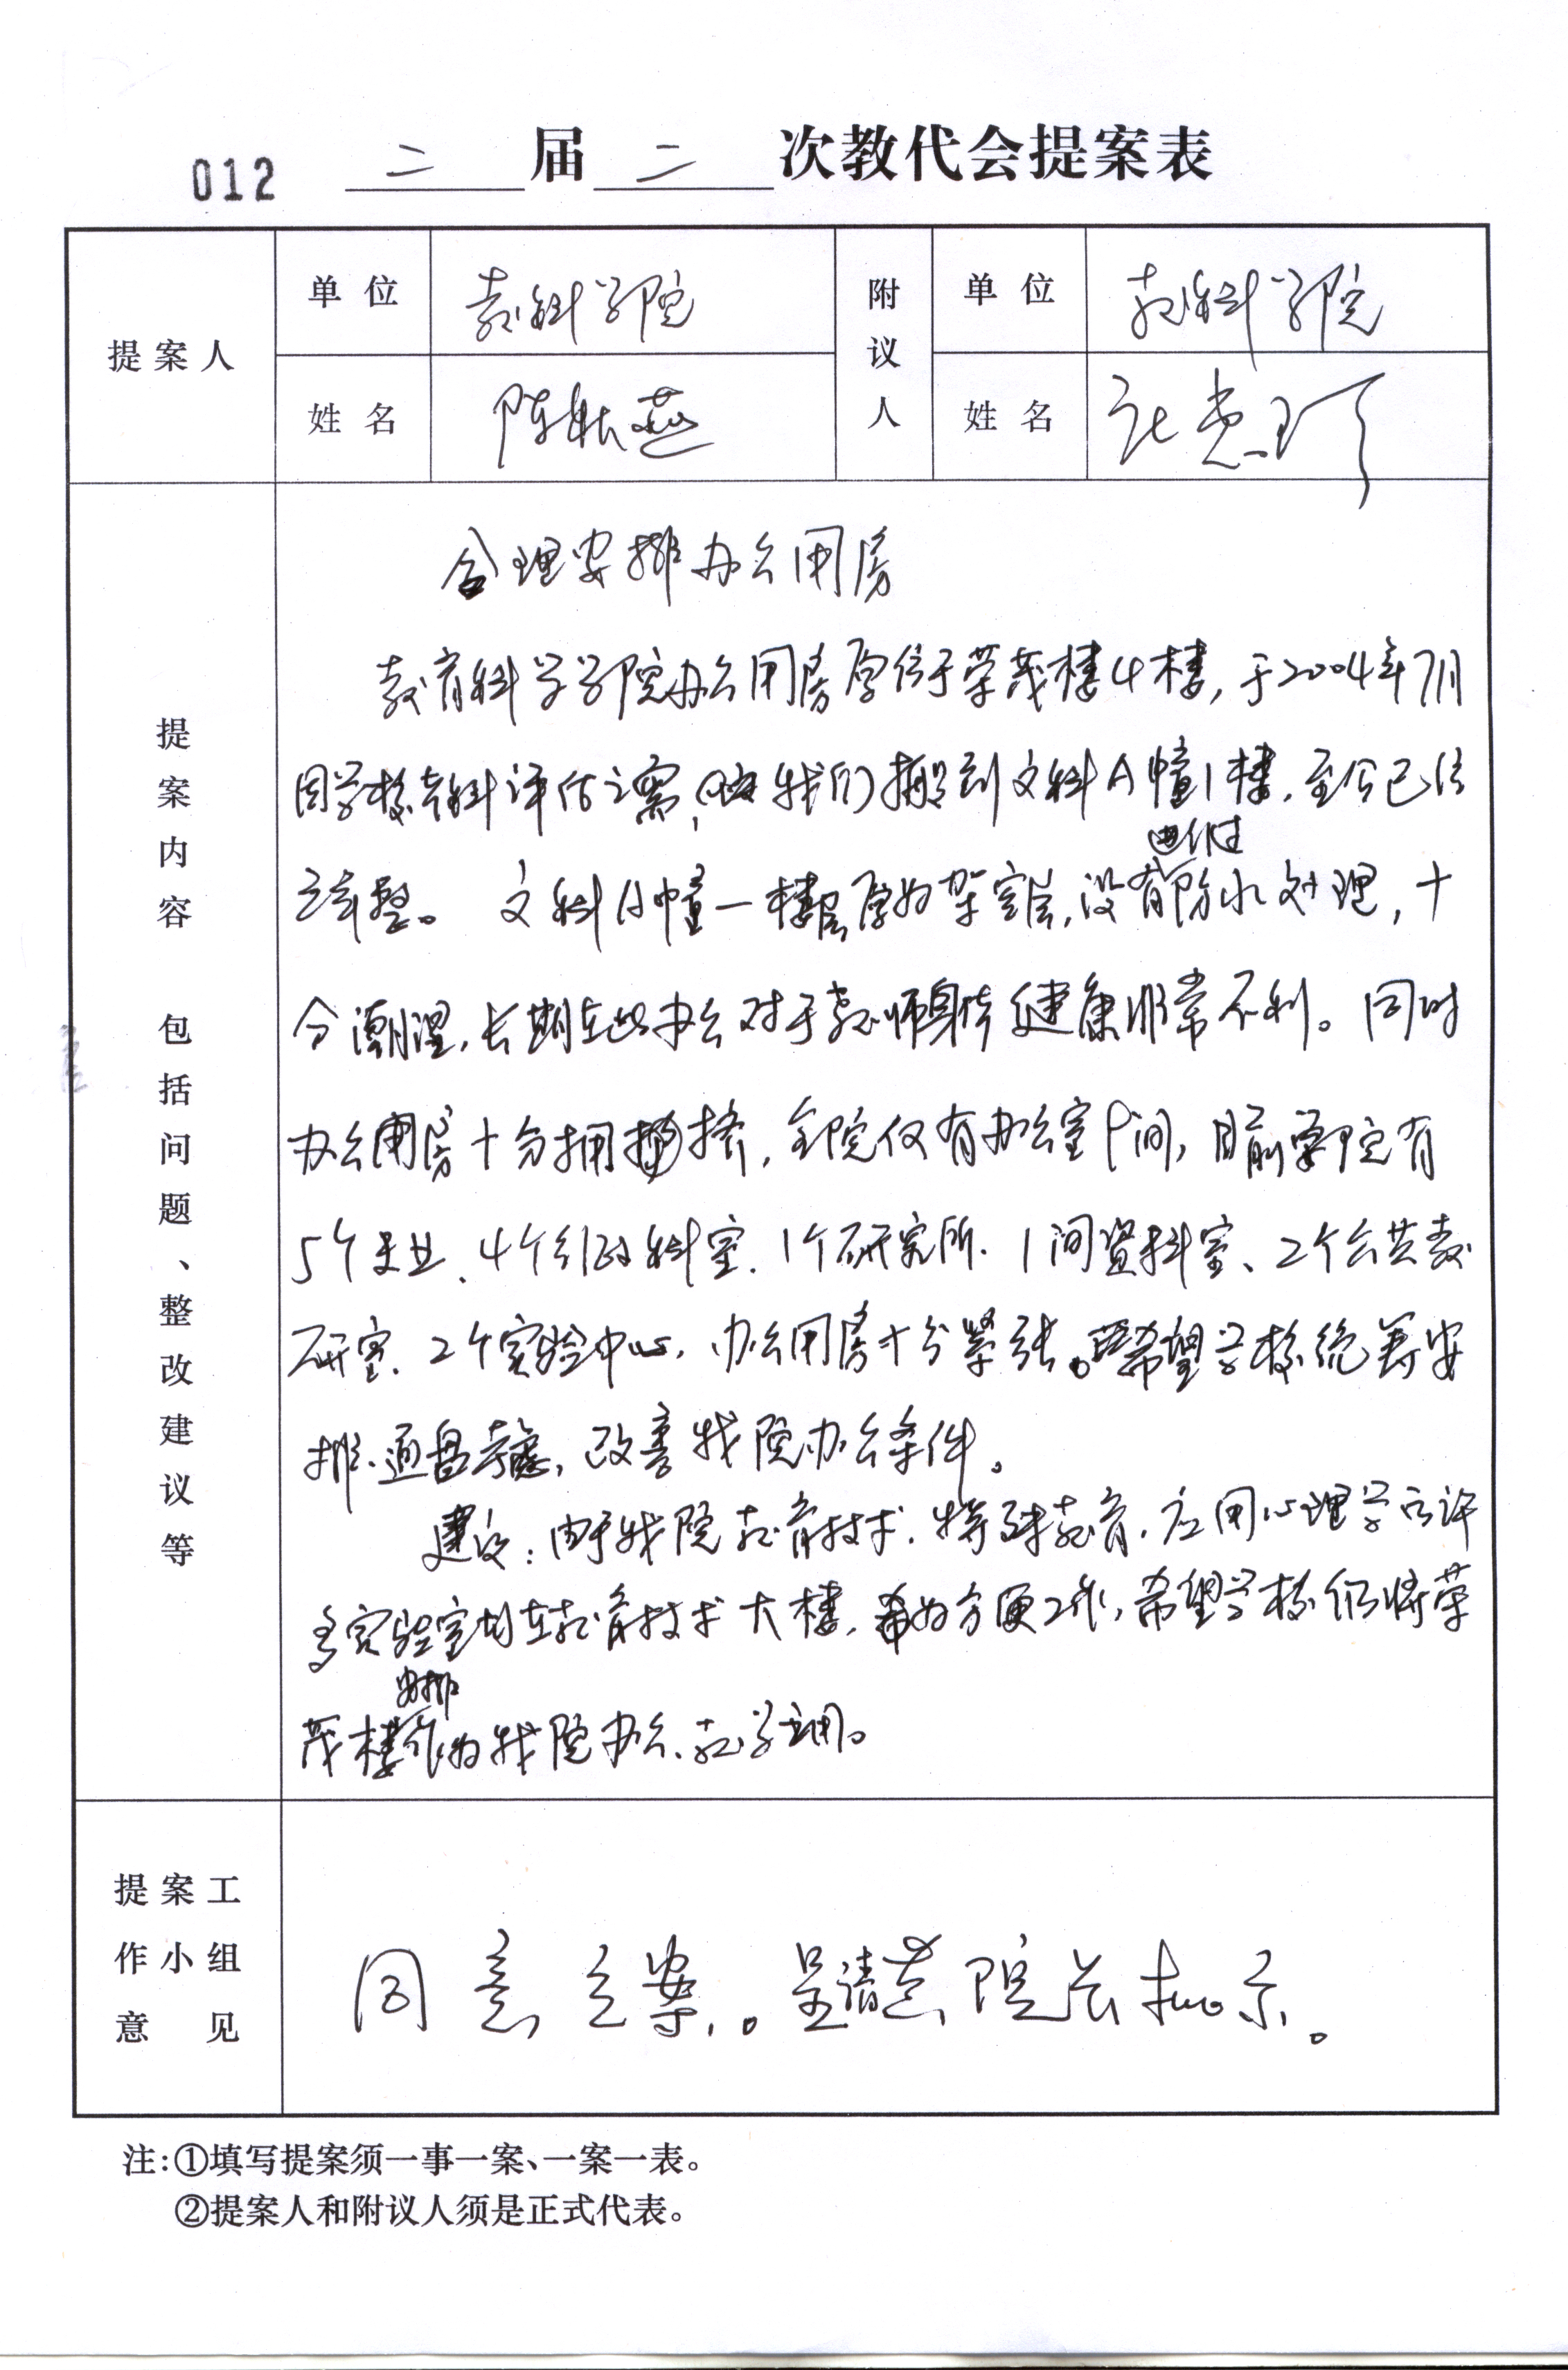 012 二届二次教代会提案表
提案人
单位
教科学院
附议人
单位
教科学院
姓名
陈耘燕
姓名
提案内容 包括问题、整改建议等
合理安排办公用房
教育科学学院办公用房原位于荣茂楼4楼,于2004年7月
因学校本科评估之需,我们搬到文科A幢1楼,至今已住
三年整。文科A幢一楼层原为架空层,没有做过防水处理,十
分潮湿,长期在此办公对于教师身体健康非常不利。同时
办公用房十分拥挤,全院仅有办公室9间,目前学院有
5个专业、4个行政科室、1个研究所、1间资料室、2个公共教
研室、2个实验中心,办公用房十分紧张。希望学校统筹安
排、通盘考虑,改善我院办公条件。
建议:由于我院教育技术、特殊教育、应用心理学的许
多实验室均在教育技术大楼,为方便工作,希望学校仍将荣
茂楼安排作为我院办公、教学之用。
提案工作小组意见
同意立案。呈请黄院长批示。
注:①填写提案须一事一案、一案一表。
②提案人和附议人须是正式代表。